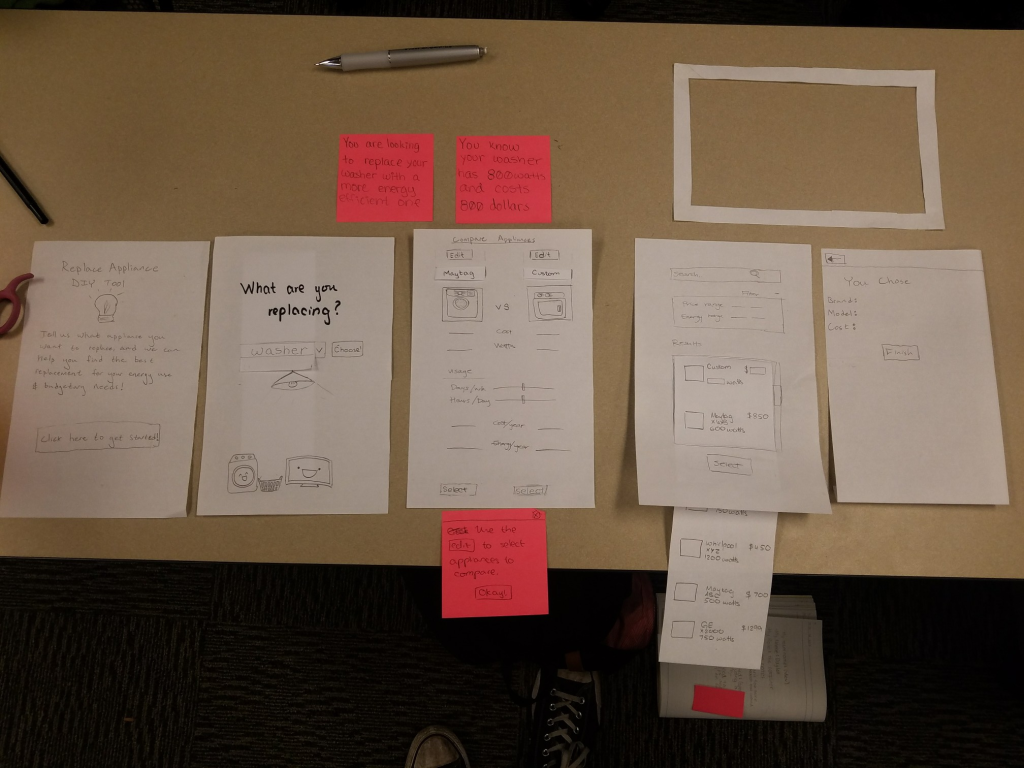 You are looking
to replace your
washer with a
more energy
efficient one
You know
your washer
has 800 watts
and costs
800 dollars
Replace Appliance
DIY Tool
Tell us what appliance you
want to replace, and we can
help you find the best
replacement for your energy use
& budgeting needs!
Click here to get started!
What are you
replacing?
washer
Choose!
Compare Appliances
Edit
Edit
Maytag
Custom
VS
Cost
Watts
usage
Days/wk
Hours/Day
Cost/year
Energy/year
Select
Select
Use the
edit to select
appliances to
compare.
Okay!
Search
Filters
Price range
Energy range
Results
Custom $
watts
Maytag $350
600 watts
Select
Whirlpool $450
XYZ
1200 watts
Maytag $700
ABC
500 watts
GE $1299
X2000
750 watts
You Chose
Brand:
Model:
Cost:
Finish